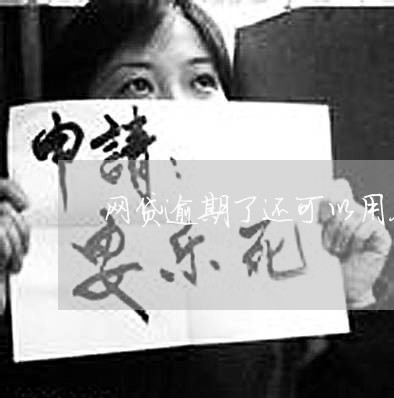 申請：
网贷逾期了还可以用
安乐死